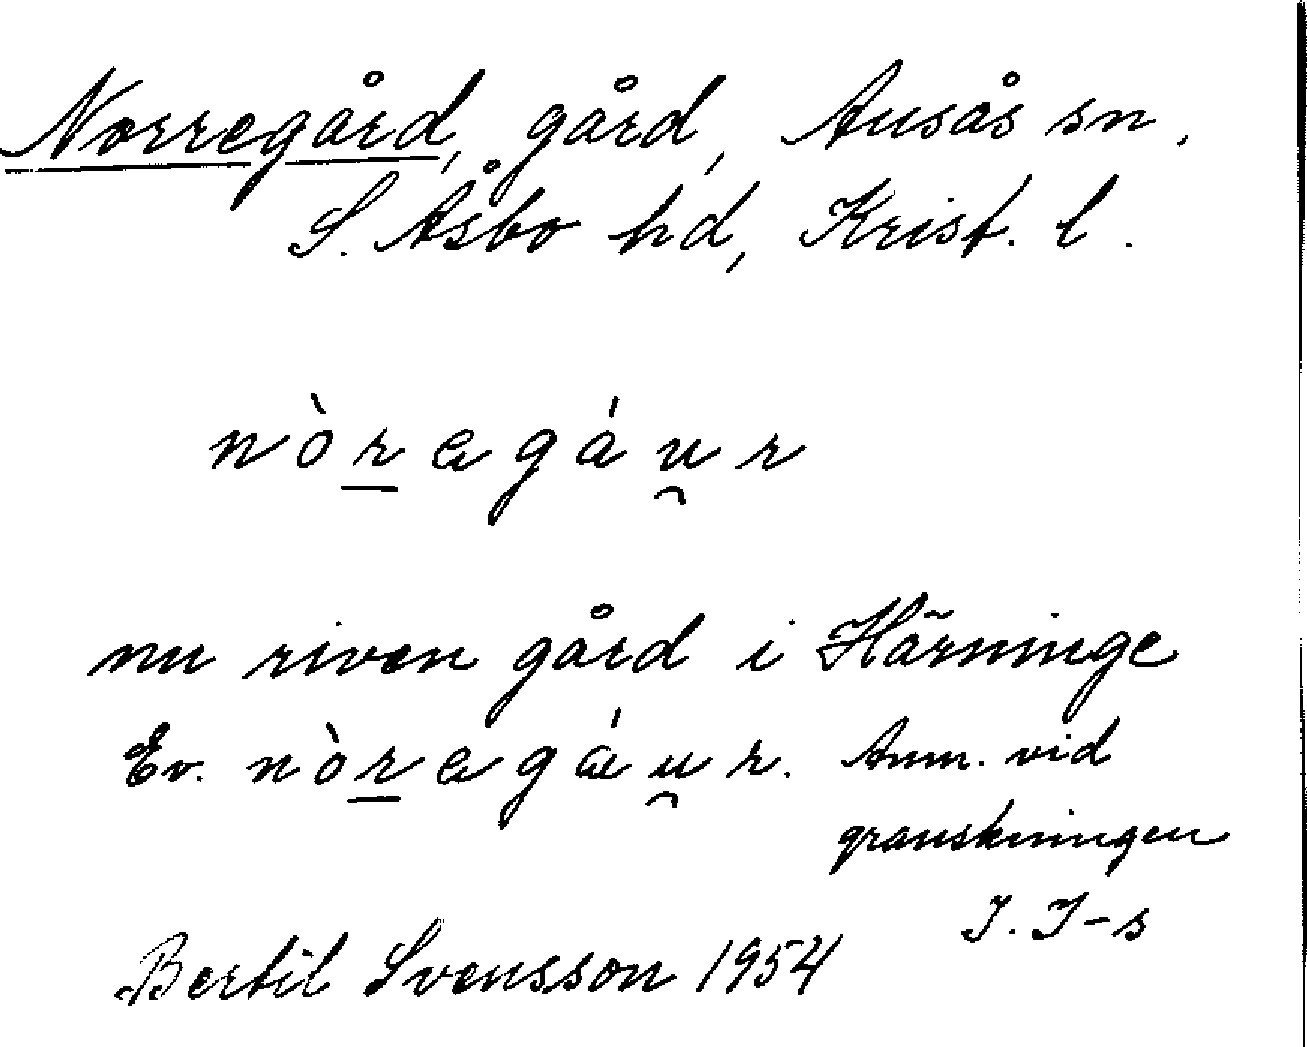 Norregård, gård, Ausås sn.
S. Åsbo hd, Krist. l.
nòṟegáu̯r
nu riven gård i Härninge
Ev. nòṟegáu̯r. Anm. vid
granskningen
J. J-s
Bertil Svensson 1954